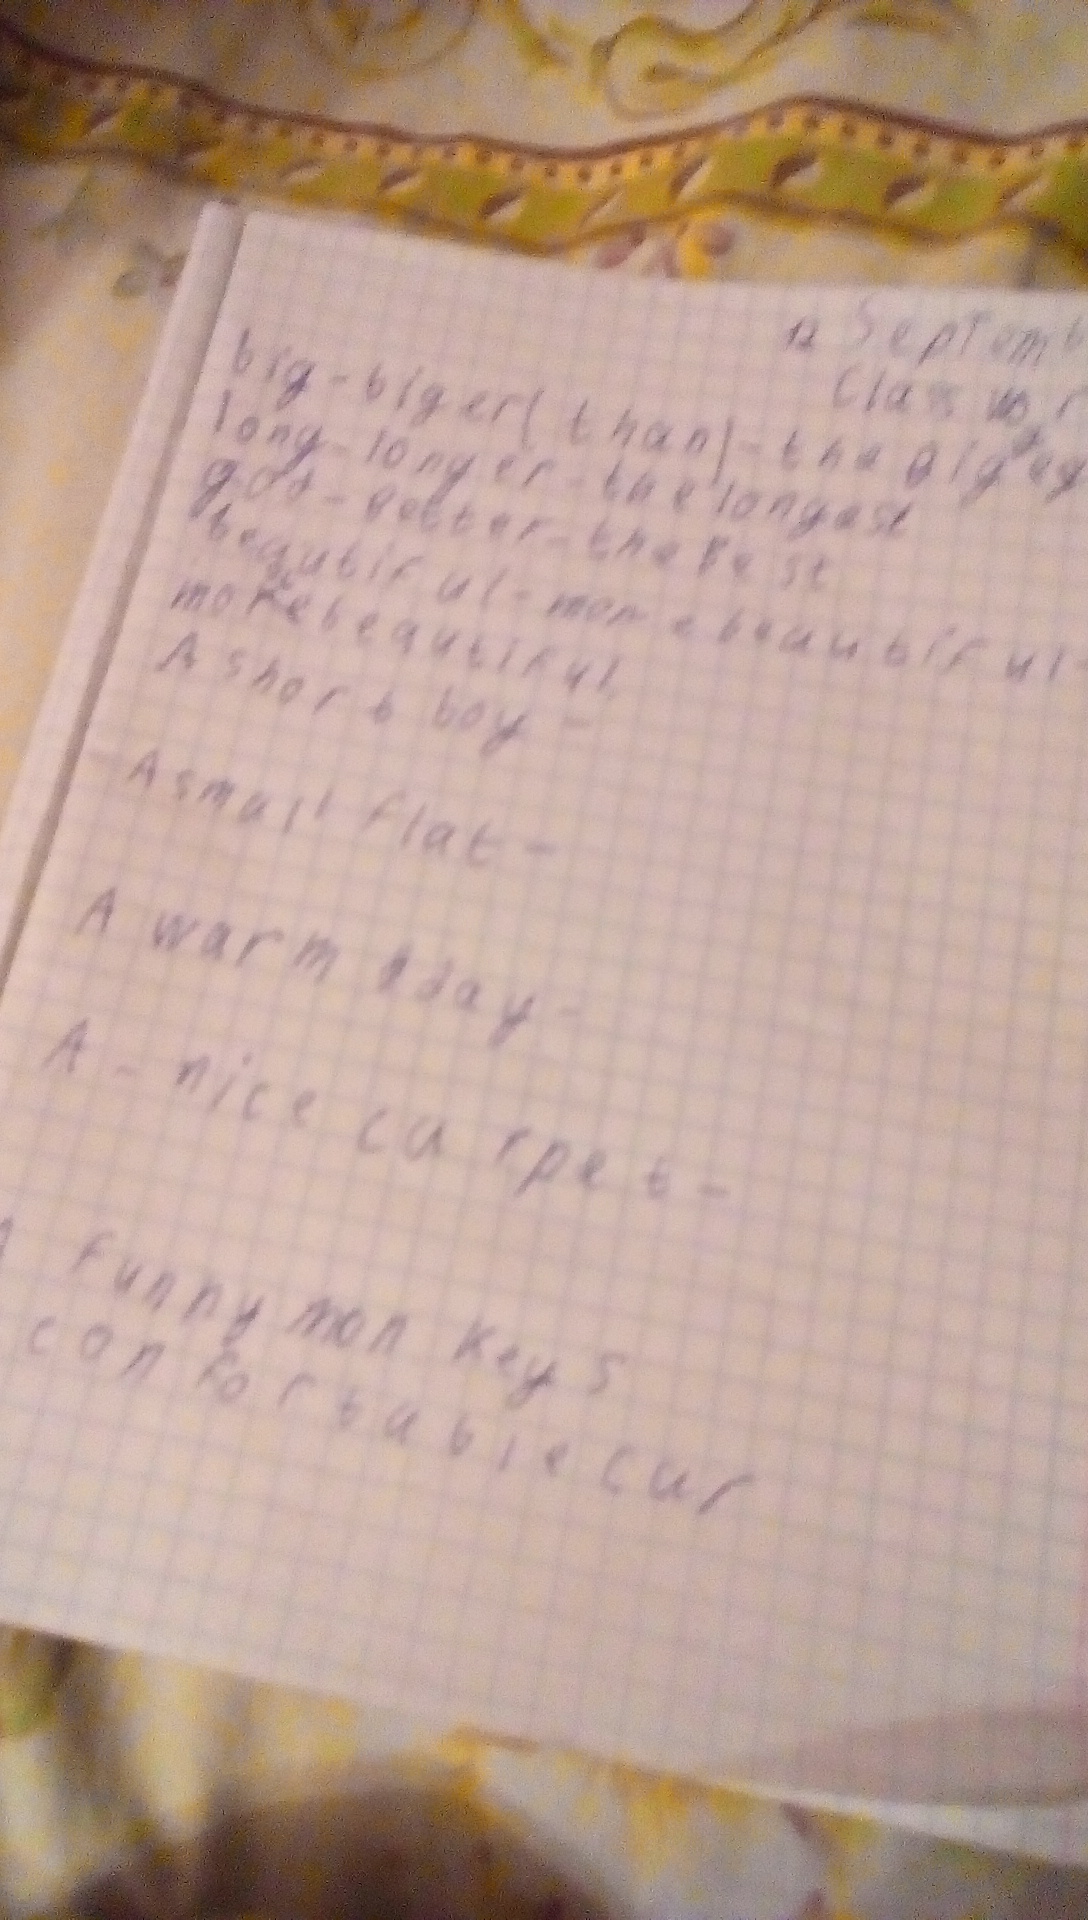 12 Septemb
Class wor
big-biger(than)-the biggeg
long-longer-the longest
god-better-the best
beautiful-more beautiful-
more beautiful
A short boy -
- A small flat -
A warm day -
A - nice carpet -
A funny monkeys
confortable car